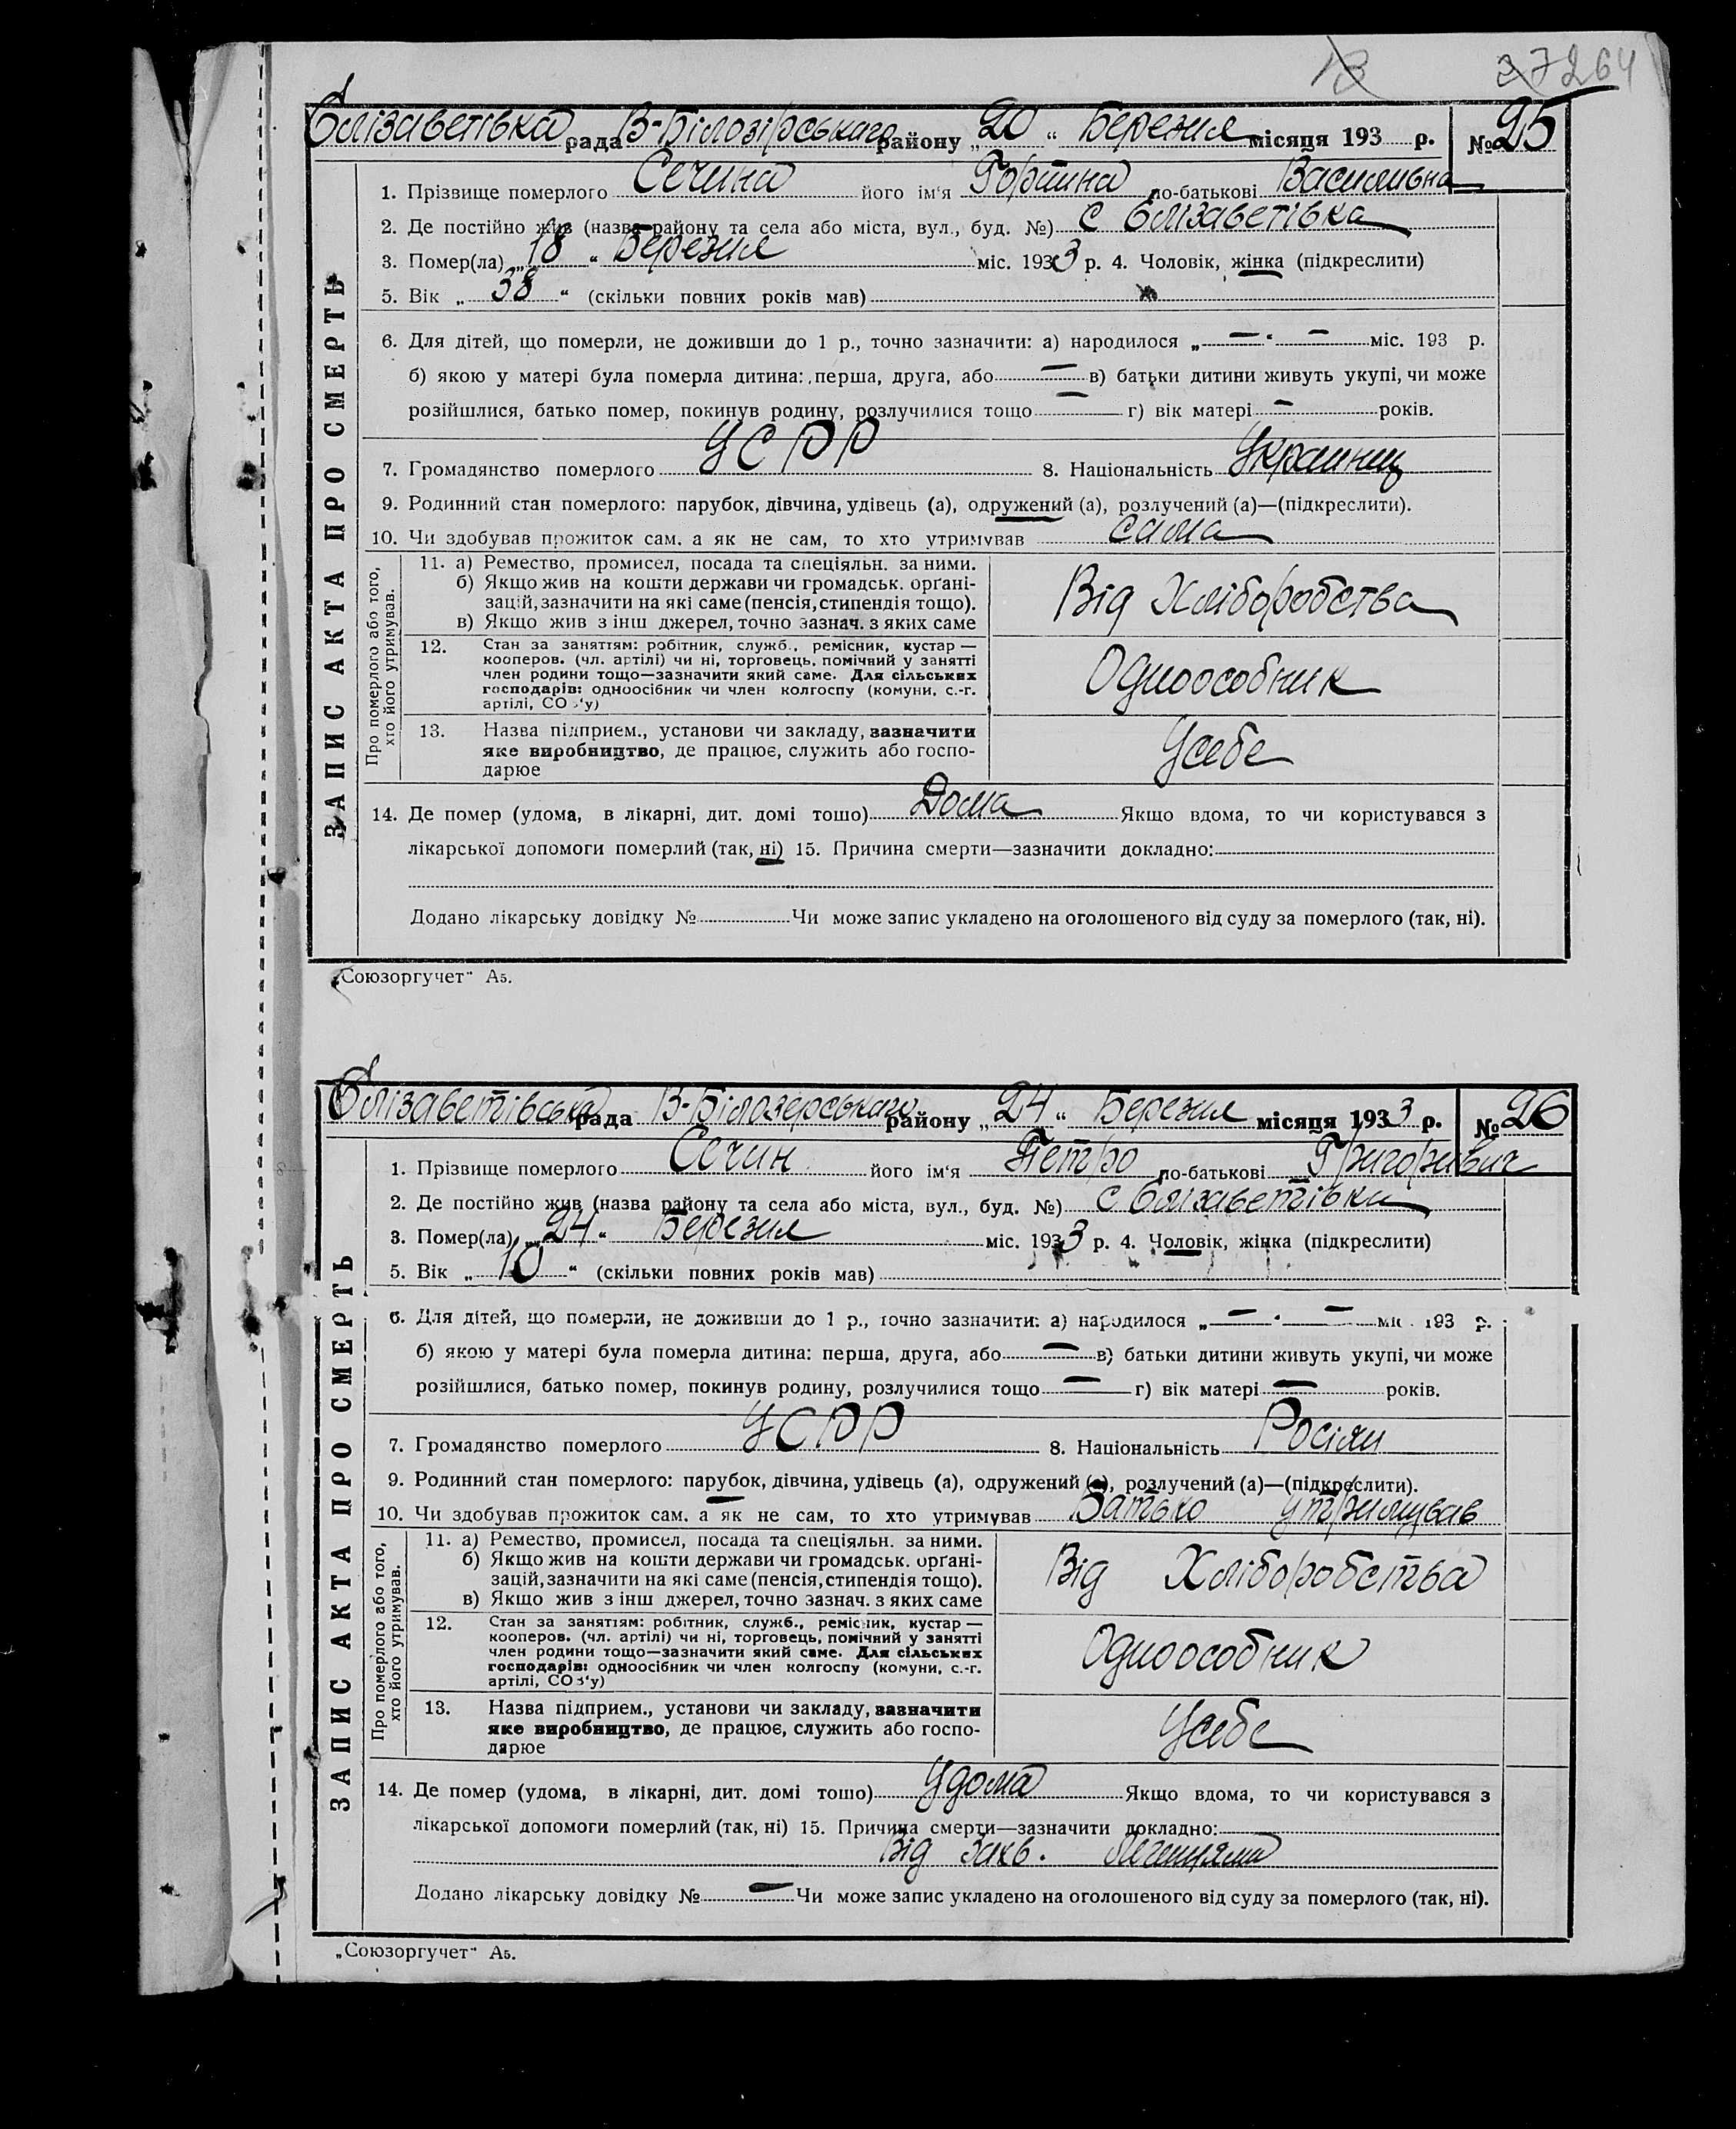 13 37 264
Єлізаветівка рада В-Білозірського району „20“ Березня місяця 193 р. № 25
1. Прізвище померлого Сечина його ім'я Горпина по-батькові Василивна
2. Де постійно жив (назва району та села або міста, вул., буд. №) с Єлізаветівка
3. Помер(ла) „18“ Березня міс. 1933 р. 4. Чоловік, жінка (підкреслити)
5. Вік „38“ (скільки повних років мав)
6. Для дітей, що померли, не доживши до 1 р., точно зазначити: а) народилося „—“ — міс. 193 р.
б) якою у матері була померла дитина: перша, друга, або — в) батьки дитини живуть укупі, чи може
розійшлися, батько помер, покинув родину, розлучилися тощо — г) вік матері — років.
7. Громадянство померлого УСРР 8. Національність Украинец
9. Родинний стан померлого: парубок, дівчина, удівець (а), одружений (а), розлучений (а)—(підкреслити).
10. Чи здобував прожиток сам, а як не сам, то хто утримував сама
Про померлого або того, хто його утримував.
11. а) Ремество, промисел, посада та спеціяльн. за ними.
б) Якщо жив на кошти держави чи громадськ. орґані-
зацій, зазначити на які саме (пенсія, стипендія тощо).
в) Якщо жив з інш джерел, точно зазнач. з яких саме
Від Хліборобства
12. Стан за заняттям: робітник, служб., ремісник, кустар —
кооперов. (чл. артілі) чи ні, торговець, помічний у занятті
член родини тощо—зазначити який саме. Для сільських
господарів: одноосібник чи член колгоспу (комуни, с.-г.
артілі, СОЗ'у)
Одноособник
13. Назва підприєм., установи чи закладу, зазначити
яке виробництво, де працює, служить або госпо-
дарює
Усебе
14. Де помер (удома, в лікарні, дит. домі тощо) Дома Якщо вдома, то чи користувався з
лікарської допомоги померлий (так, ні) 15. Причина смерти—зазначити докладно:
Додано лікарську довідку № Чи може запис укладено на оголошеного від суду за померлого (так, ні).
ЗАПИС АКТА ПРО СМЕРТЬ
„Союзоргучет“ А5.
Єлізаветівська рада В-Білозерського району „24“ Березня місяця 1933 р. № 26
1. Прізвище померлого Сечин його ім'я Петро по-батькові Григориевич
2. Де постійно жив (назва району та села або міста, вул., буд. №) с Єлізаветівки
3. Помер(ла) „24“ Березня міс. 1933 р. 4. Чоловік, жінка (підкреслити)
5. Вік „10“ (скільки повних років мав)
6. Для дітей, що померли, не доживши до 1 р., точно зазначити: а) народилося „—“ — міс. 193 р.
б) якою у матері була померла дитина: перша, друга, або — в) батьки дитини живуть укупі, чи може
розійшлися, батько помер, покинув родину, розлучилися тощо — г) вік матері — років.
7. Громадянство померлого УСРР 8. Національність Росіян
9. Родинний стан померлого: парубок, дівчина, удівець (а), одружений (а), розлучений (а)—(підкреслити).
10. Чи здобував прожиток сам, а як не сам, то хто утримував Батько утримував
Про померлого або того, хто його утримував.
11. а) Ремество, промисел, посада та спеціяльн. за ними.
б) Якщо жив на кошти держави чи громадськ. орґані-
зацій, зазначити на які саме (пенсія, стипендія тощо).
в) Якщо жив з інш джерел, точно зазнач. з яких саме
Від Хліборобства
12. Стан за заняттям: робітник, служб., ремісник, кустар —
кооперов. (чл. артілі) чи ні, торговець, помічний у занятті
член родини тощо—зазначити який саме. Для сільських
господарів: одноосібник чи член колгоспу (комуни, с.-г.
артілі, СОЗ'у)
Одноособник
13. Назва підприєм., установи чи закладу, зазначити
яке виробництво, де працює, служить або госпо-
дарює
Усебе
14. Де помер (удома, в лікарні, дит. домі тощо) Удома Якщо вдома, то чи користувався з
лікарської допомоги померлий (так, ні) 15. Причина смерти—зазначити докладно:
Від Захв.
Додано лікарську довідку № — Чи може запис укладено на оголошеного від суду за померлого (так, ні).
ЗАПИС АКТА ПРО СМЕРТЬ
„Союзоргучет“ А5.